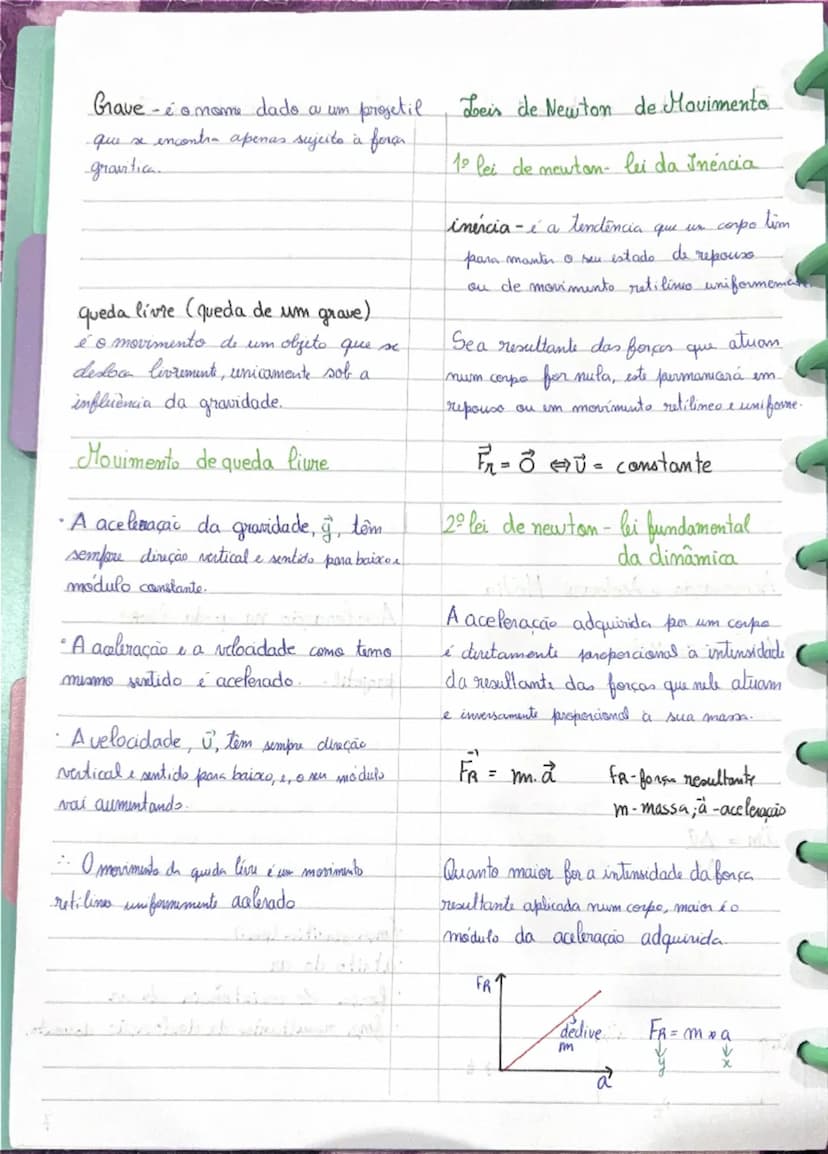 Grave - é o nome dado a um projetil
que se encontra apenas sujeito à força
gravítica.
queda livre (queda de um grave)
é o movimento de um objeto que se
desloca livremente, unicamente sob a
influência da gravidade.
Movimento de queda livre
· A aceleração da gravidade, g⃗, têm
sempre direção vertical e sentido para baixo e
módulo constante.
· A aceleração e a velocidade como tema
mesmo sentido é acelerado.
· A velocidade, v⃗, têm sempre direção
vertical e sentido para baixo, e, o seu módulo
vai aumentando.
∴ O movimento da queda livre é um movimento
retilíneo uniformemente acelerado
Leis de Newton de Movimento
1º lei de newton - lei da Inércia
inércia - é a tendência que um corpo tem
para manter o seu estado de repouso
ou de movimento retilíneo uniformemen
Se a resultante das forças que atuam
num corpo for nula, este permanecerá em
repouso ou em movimento retilíneo e uniforme.
F⃗R = 0⃗ ⇔ v⃗ = constante
2º lei de newton - lei fundamental
da dinâmica
A aceleração adquirida por um corpo
é diretamente proporcional à intensidade
da resultante das forças que nele atuam
e inversamente proporcional à sua massa.
F⃗R = m. a⃗ FR - força resultante
m - massa; a⃗ - aceleração
Quanto maior for a intensidade da força
resultante aplicada num corpo, maior é o
módulo da aceleração adquirida.
FR
declive
m
a
FR = m × a
y x